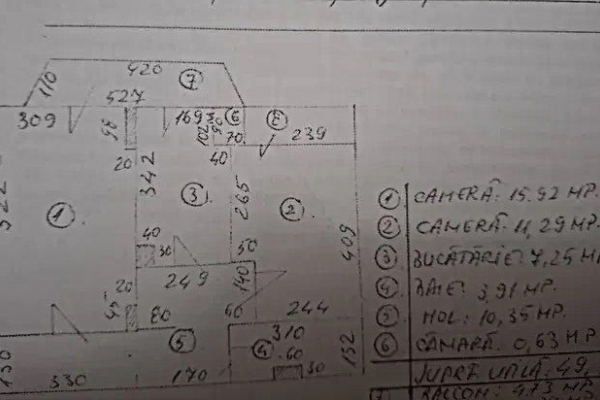 420
7
110
527
309
169
102
90
6
70
239
20
342
40
3
265
1
2
409
40
30
20
249
50
140
80
60
244
5
310
4
60
30
152
330
170
1 CAMERĂ: 15.92 MP.
2 CAMERĂ: 11,29 MP.
3 BUCĂTĂRIE: 7,25 MP
4 BAIE: 3,91 MP.
5 HOL: 10,35 MP.
6 CĂMARĂ: 0,63 MP
SUPRF UTILĂ: 49,
7 BALCON: 4,73 MP